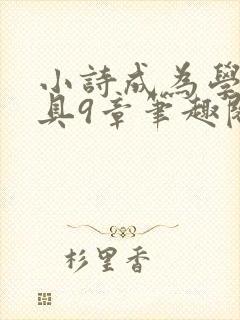 小詩成為學
具9章筆趣閣
杉里香